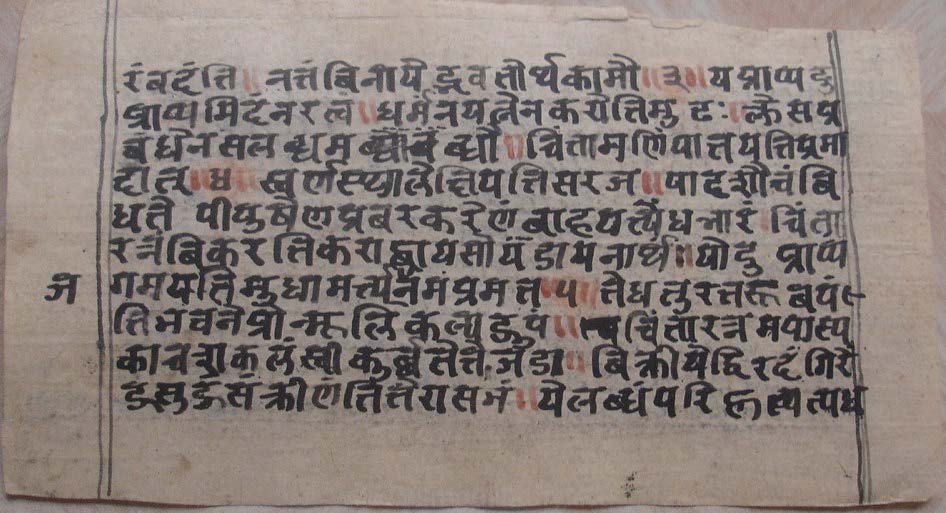 रंवदंति ॥ नत्तं विनायैद्भवतोर्थकामौ ॥ ३ ॥ यप्राप्यदु
प्राप्यमिदंनरत्वं ॥ धर्मंनयत्नेनकरोतिमुढः । क्लेसप्र
वंधेनसलब्धमब्धौ । चिंतामणिंपात्तयत्तिप्रमा
दात् ॥ ४ ॥ स्वर्णस्थालेक्षिपत्तिसरज ॥ पादशौचंवि
धत्ते पीयुषेणप्रवरकरिणंवाहयत्यैंधभारं । चिंता
रत्नंविकरत्तिकराद्वायसोयडायनार्थं ॥ योदुप्राप्य
ज गमयतिमुधामर्त्त्यनंमंप्रमत्त ५ ॥ तेधतुरतरूंवपं
तिभवनेप्रोन्मूलिकल्पद्रुमं ॥ चिंतारत्नमपास्य
काचशकलंस्वीकुर्वतेतेजडा ॥ विक्रीयद्विरदंगिरी
क्रीणंतितेरासभं ॥ येलब्धंपरिहृत्यत्यध